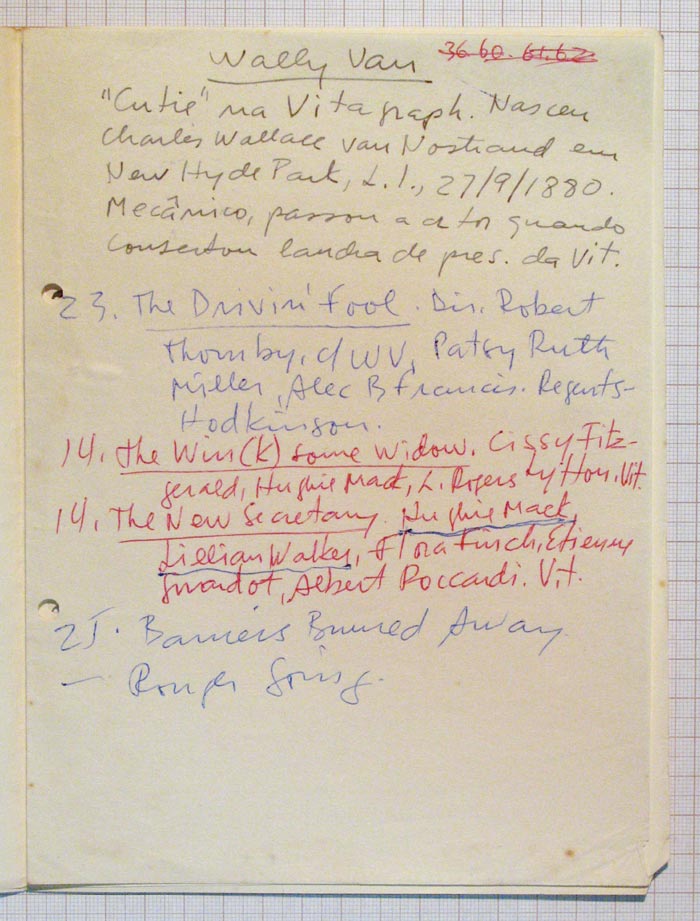 Wally Van 36.60.61.62
"Cutie" na Vitagraph. Nasceu
Charles Wallace van Nostrand em
New Hyde Park, L.I., 27/9/1880.
Mecânico, passou a ator quando
consertou lancha de pres. da Vit.
23. The Drivin' Fool. Dir. Robert
Thornby. c/ WV, Patsy Ruth
Miller, Alec B Francis. Regents-
Hodkinson.
14. The Win(k)some Widow. Cissy Fitz-
gerald, Hughie Mack, L. Rogers Lytton. Vit.
14. The New Secretary. Hughie Mack,
Lillian Walker, Flora Finch, Etienne
Girardot, Albert Roccardi. Vit.
25. Barriers Burned Away
— Rough Going.